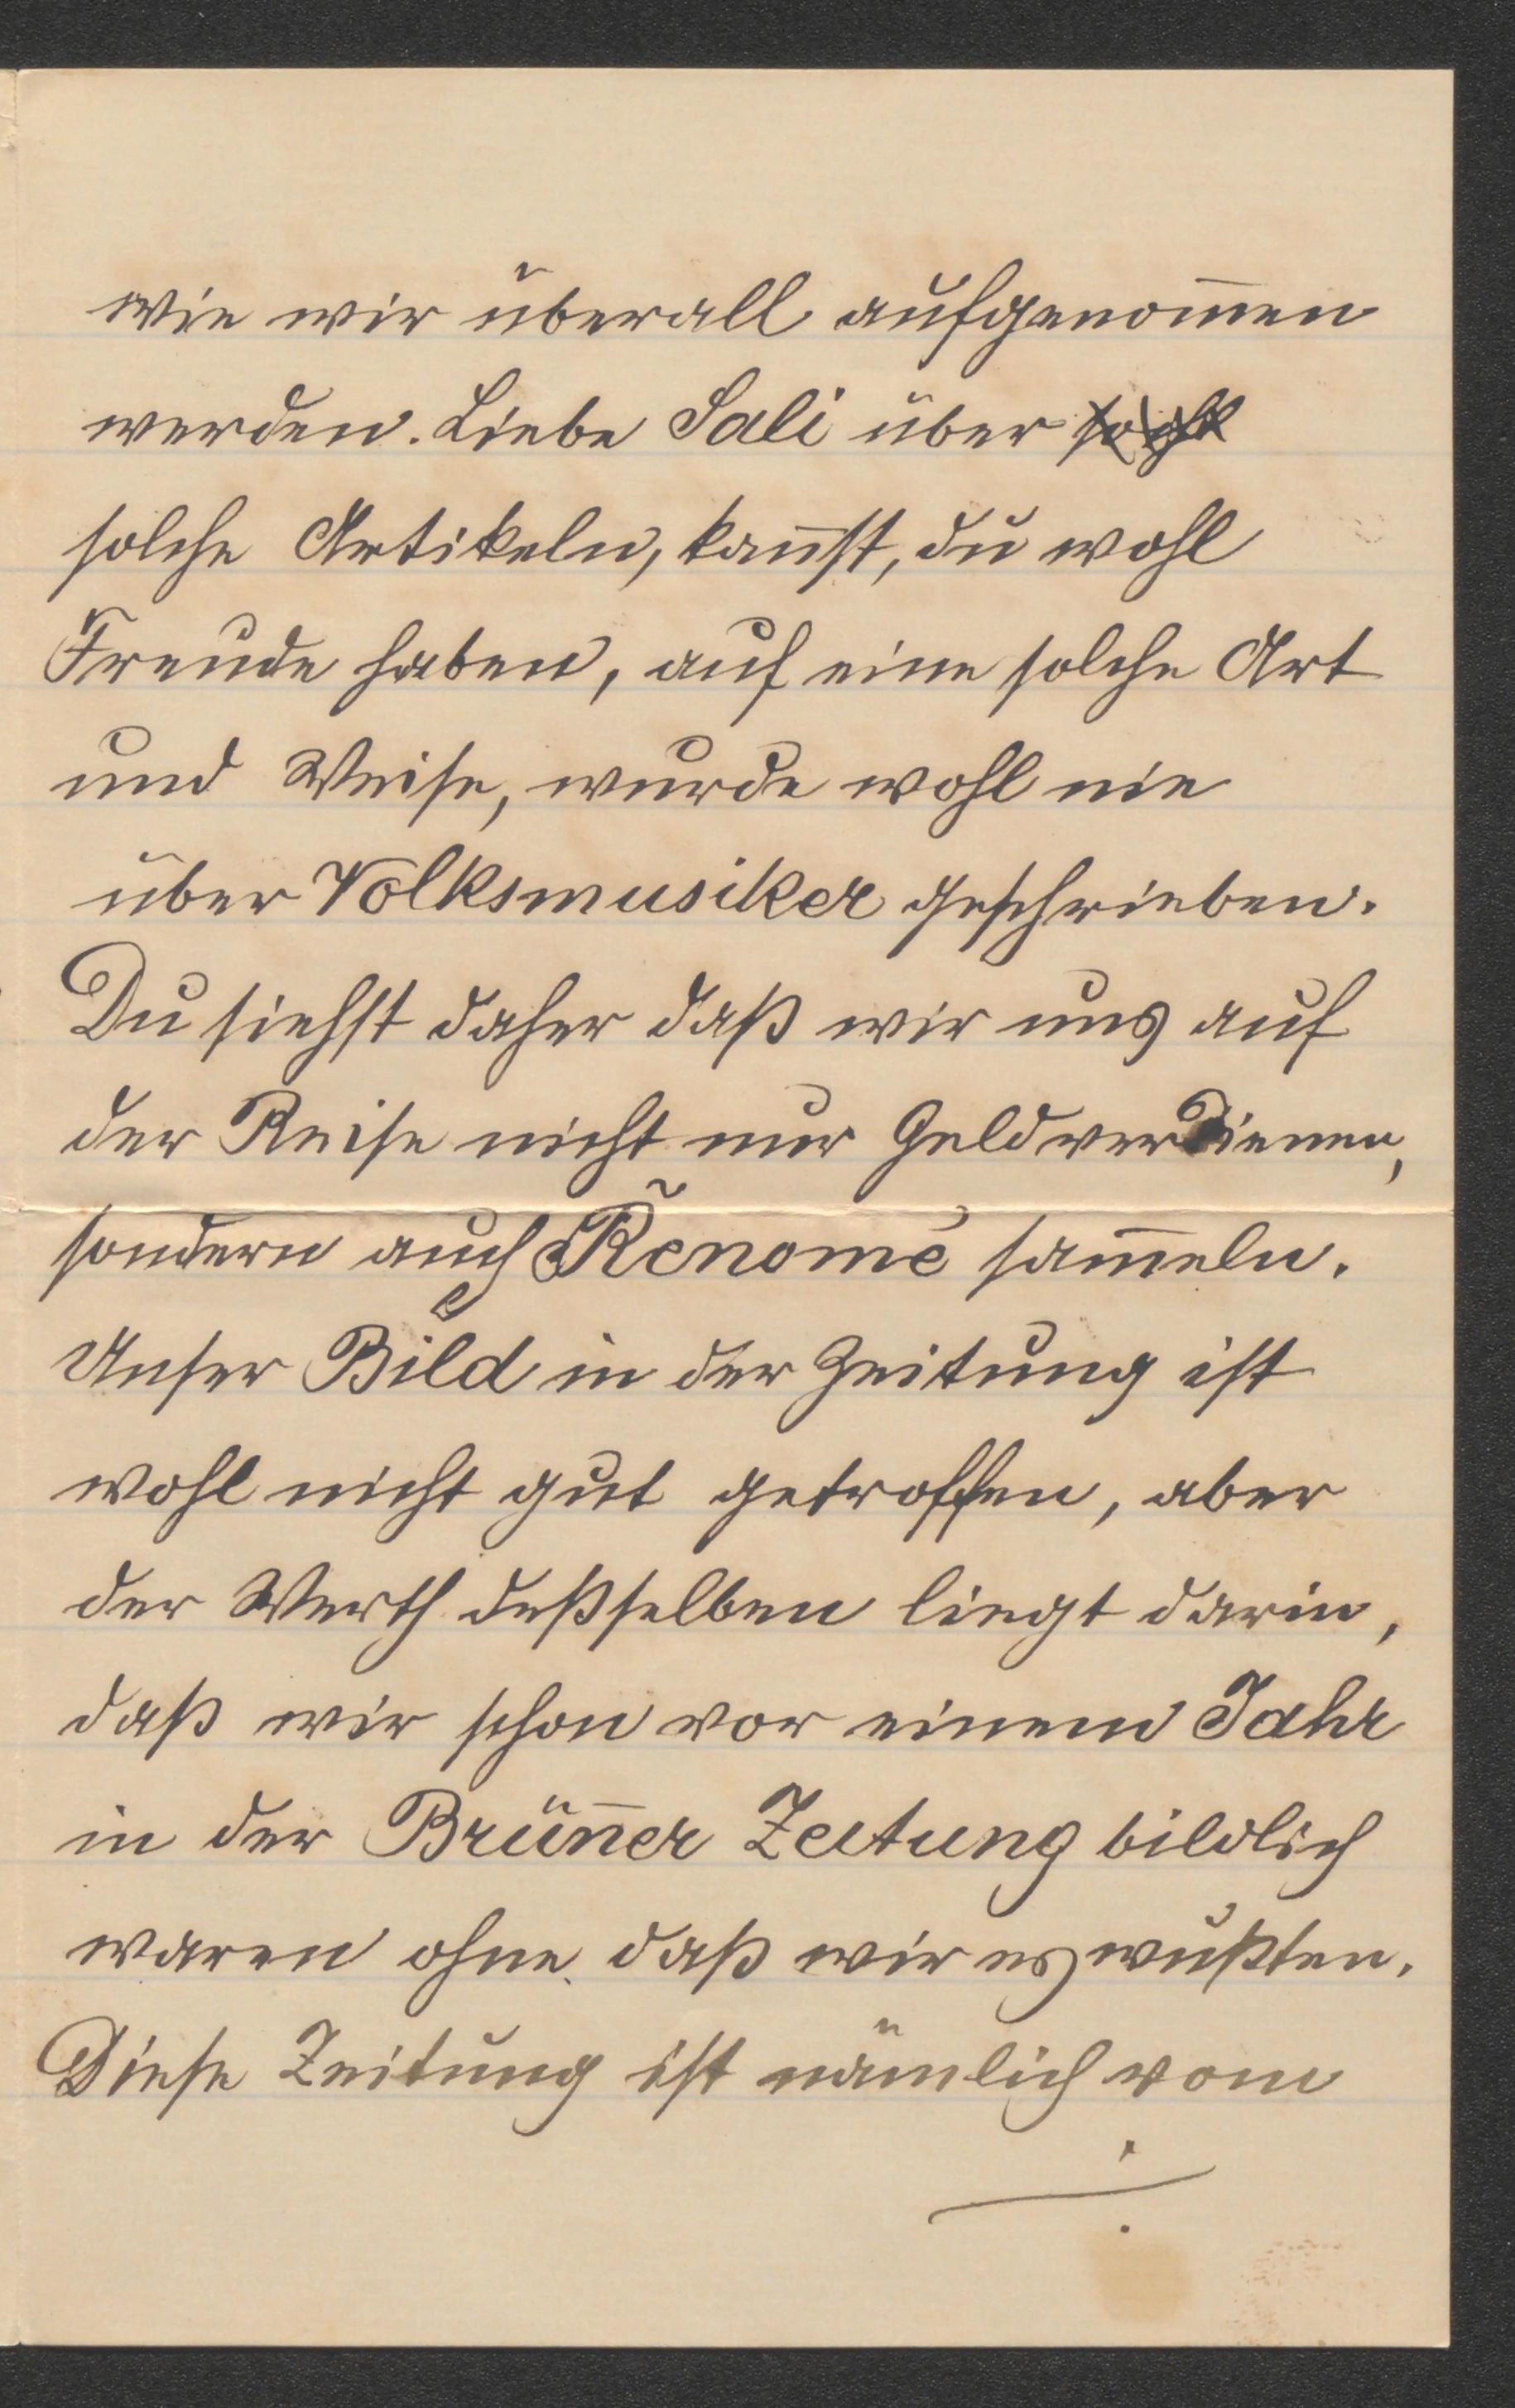 wie wir überall aufgenom̅en
werden. Liebe Sali über
solche Artikeln, kan̅st, du wohl
Freude haben, auf eine solche Art
und Weise, wurde wohl nie
über Volksmusiker geschrieben.
Du siehst daher daß wir uns auf
der Reise nicht nur Geld verdienen,
sondern auch Renomé sam̅eln.
Unser Bild in der Zeitung ist
wohl nicht gut getroffen, aber
der Werth deßselben liegt darin,
daß wir schon vor einem Jahr
in der Brün̅er Zeitung bildlich
waren ohne daß wir es wußten.
Diese Zeitung ist nämlich vom
./.